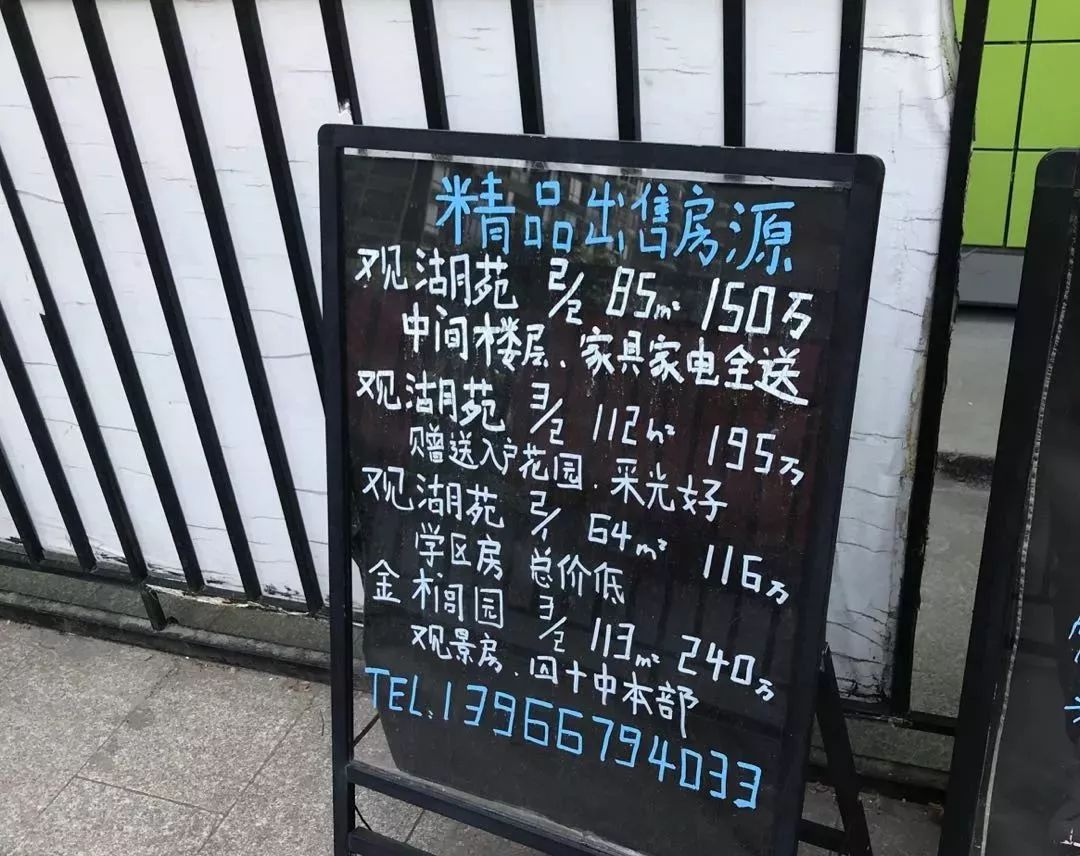 精品出售房源
观湖月苑 2/2 85m² 150万
中间楼层.家具家电全送
观湖月苑 3/2 112m² 195万
赠送入户花园.采光好
观湖月苑 2/ 64m² 116万
学区房 总价低
金 园 3/2 113m² 240万
观景房.四十中本部
TEL:13966794033